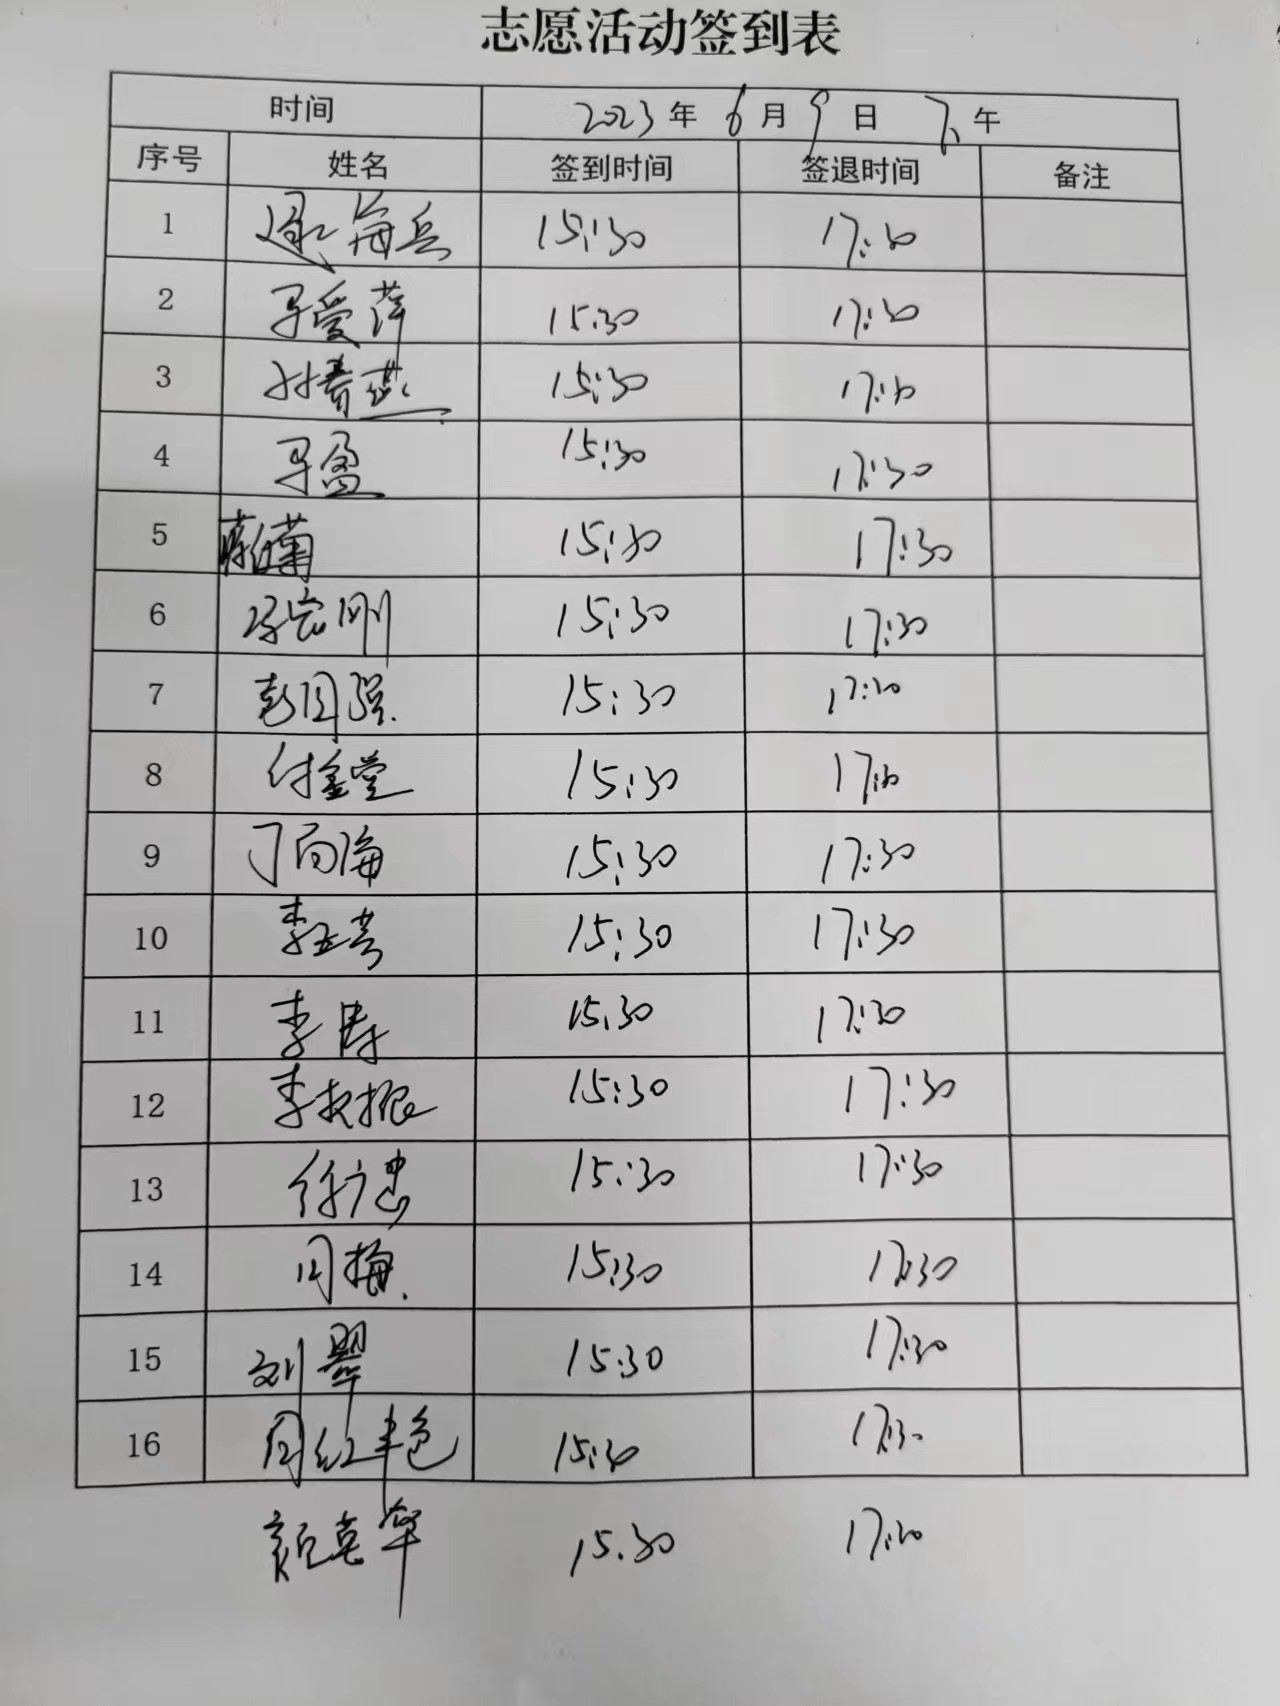 志愿活动签到表
时间 2023年6月9日下午
序号 姓名 签到时间 签退时间 备注
1 海兵 15:30 17:30
2 马爱萍 15:30 17:30
3 孙春燕 15:30 17:30
4 马盈 15:30 17:30
5 菊 15:30 17:30
6 冯宏刚 15:30 17:30
7 彭国强 15:30 17:30
8 付金堂 15:30 17:30
9 丁向海 15:30 17:30
10 李玉芳 15:30 17:30
11 李涛 15:30 17:30
12 李振 15:30 17:30
13 徐忠 15:30 17:30
14 周梅 15:30 17:30
15 刘翠 15:30 17:30
16 周红艳 15:30 17:30
颜英华 15:30 17:30